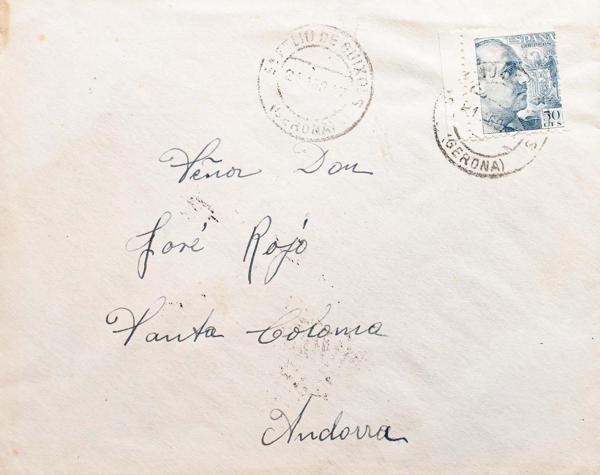 SN FELIU DE GUIXOLS
(GERONA)
ESPAÑA
CORREOS
CTS
(GERONA)
Señor Don
José Rojó
Santa Coloma
Andorra